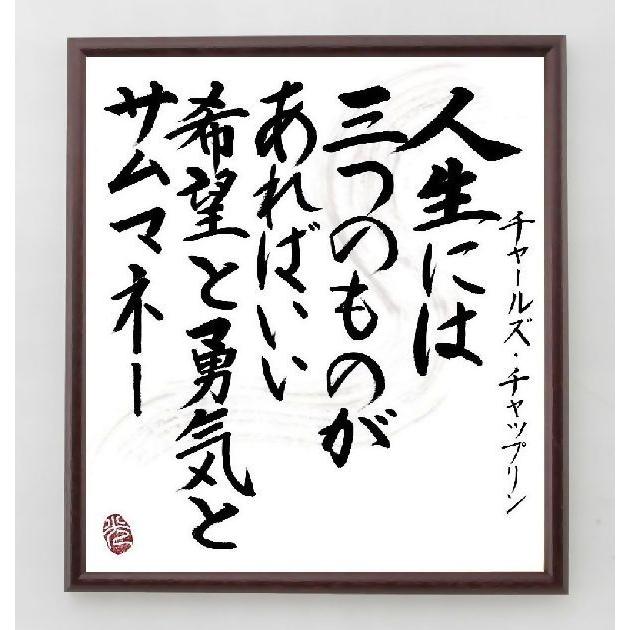 チャールズ・チャップリン
人生には
三つのものが
あればいい
希望と勇気と
サムマネー